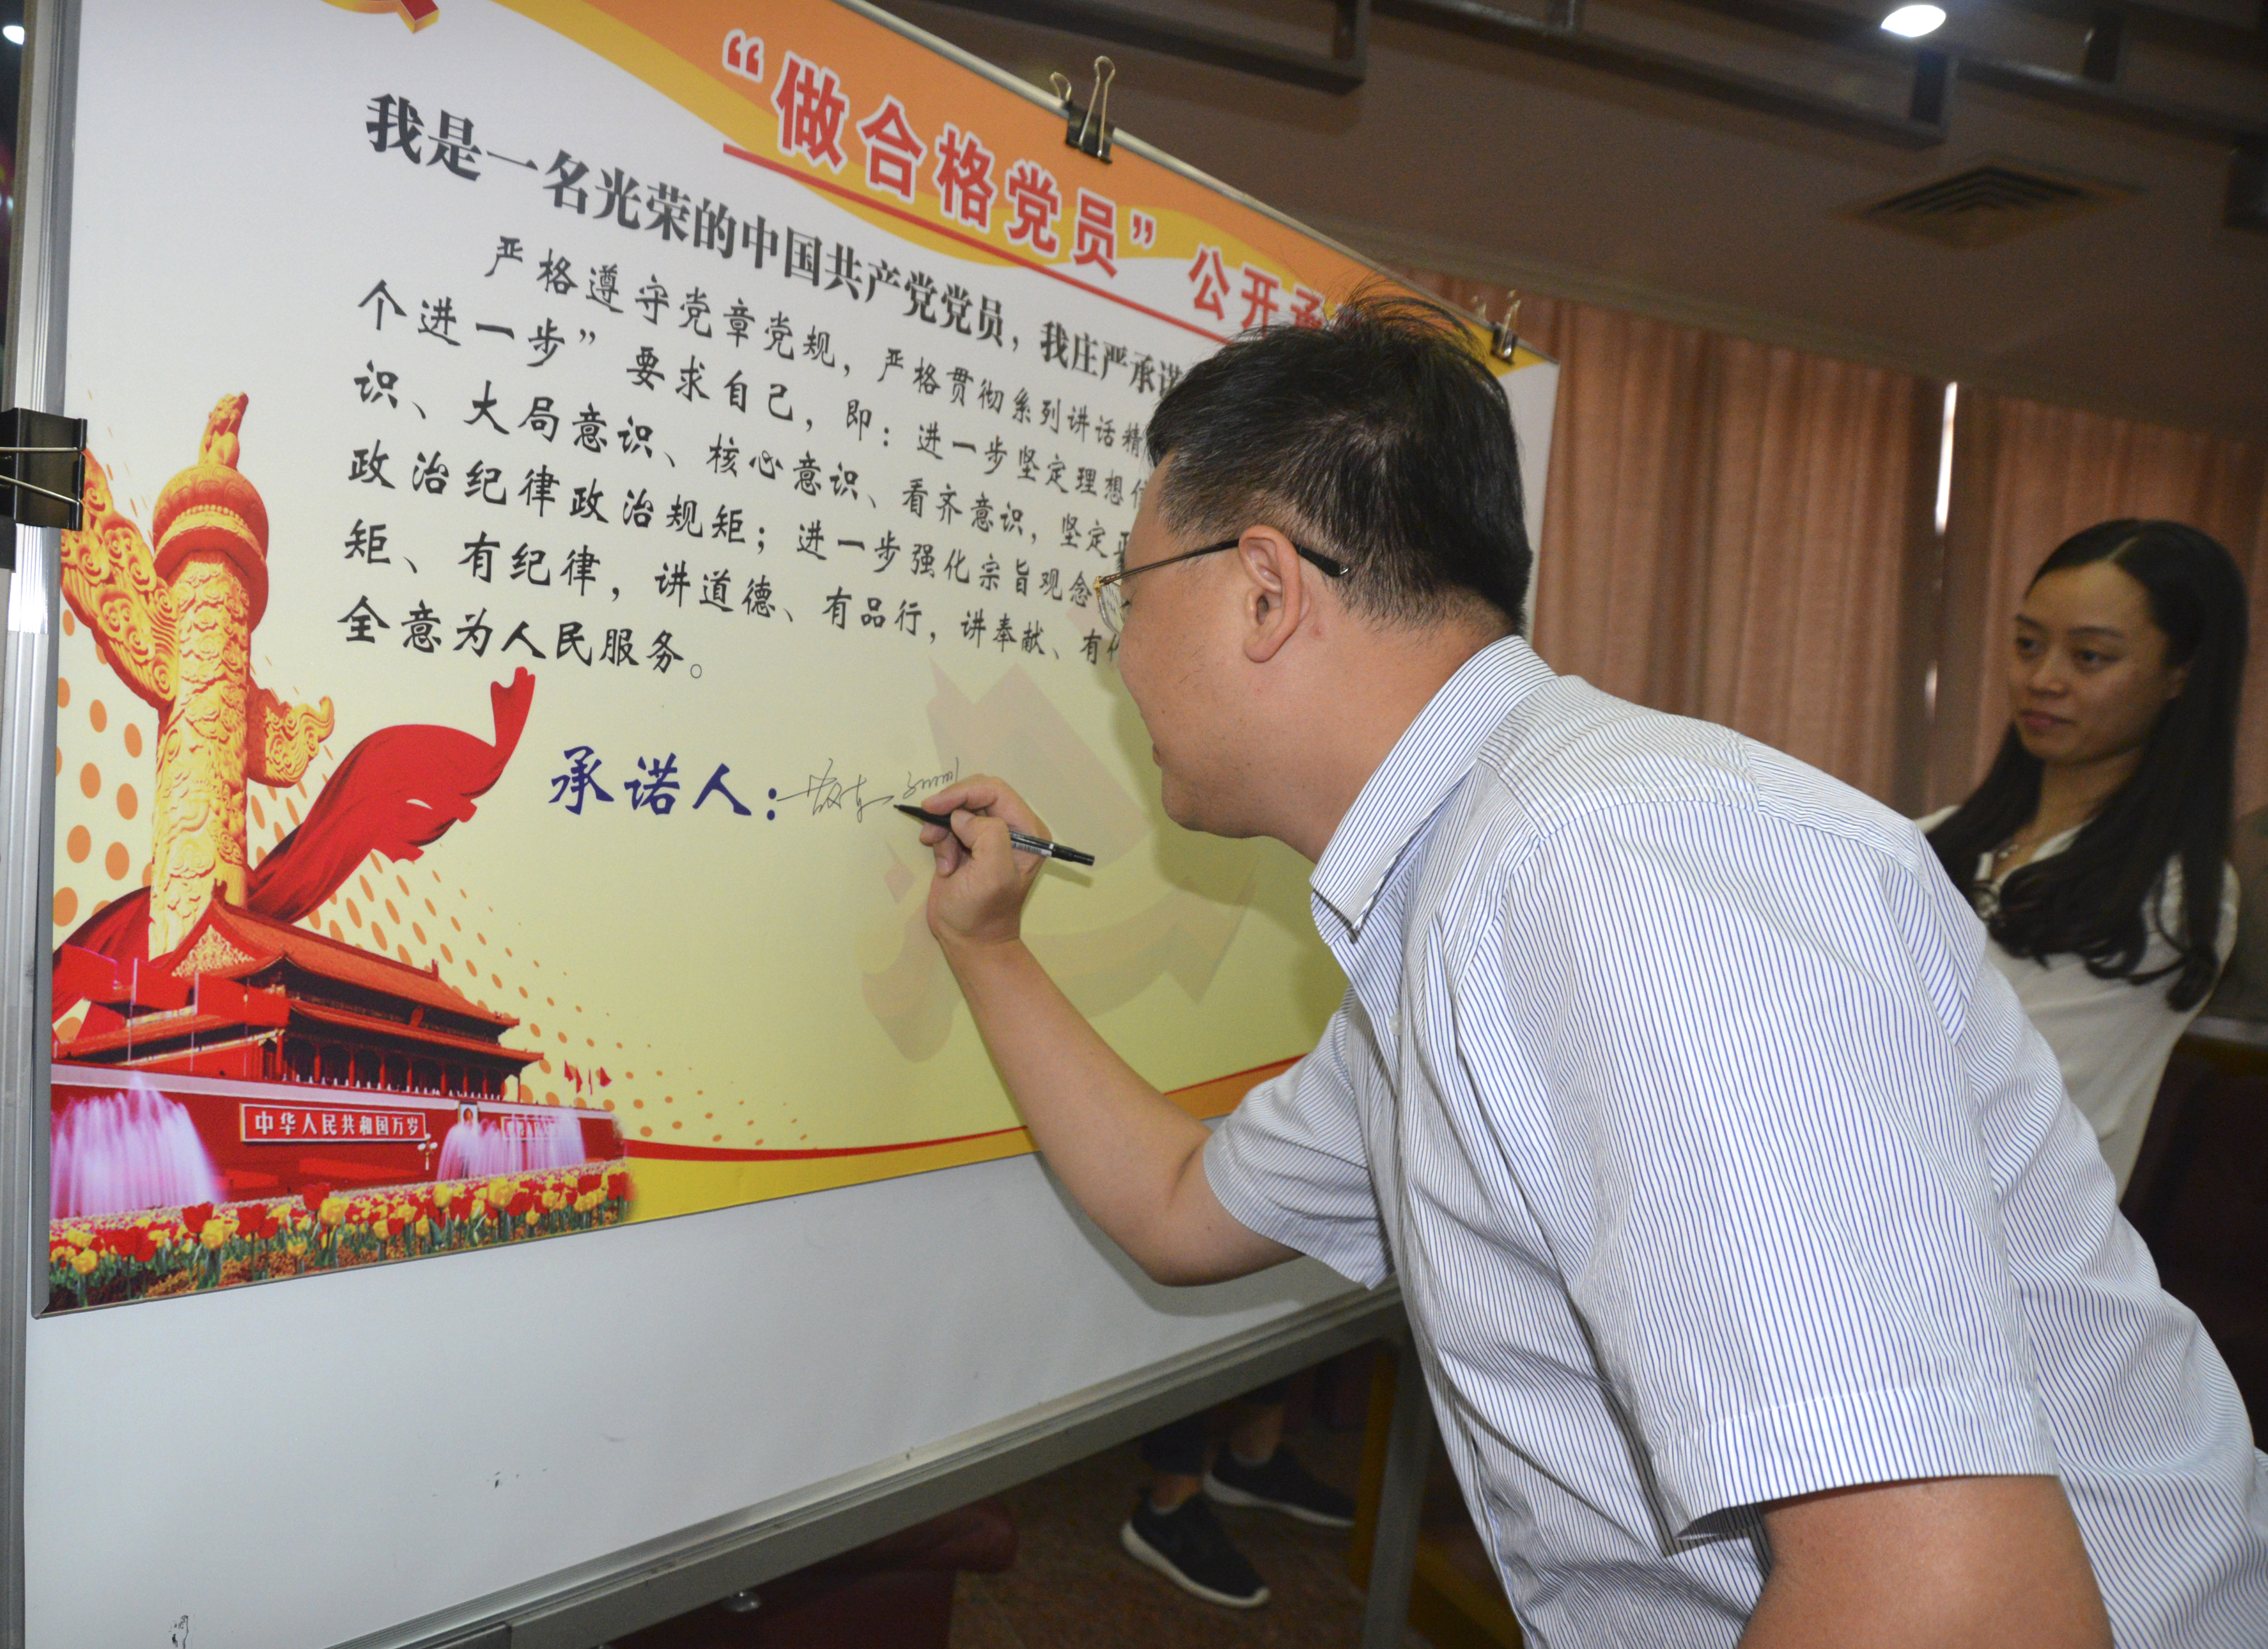 “做合格党员”公开承
我是一名光荣的中国共产党党员，我庄严承诺
严格遵守党章党规，严格贯彻系列讲话精
个进一步”要求自己，即：进一步坚定理想信
识、大局意识、核心意识、看齐意识，坚定正
政治纪律政治规矩；进一步强化宗旨观念
矩、有纪律，讲道德、有品行，讲奉献、有作
全意为人民服务。
承诺人：
中华人民共和国万岁